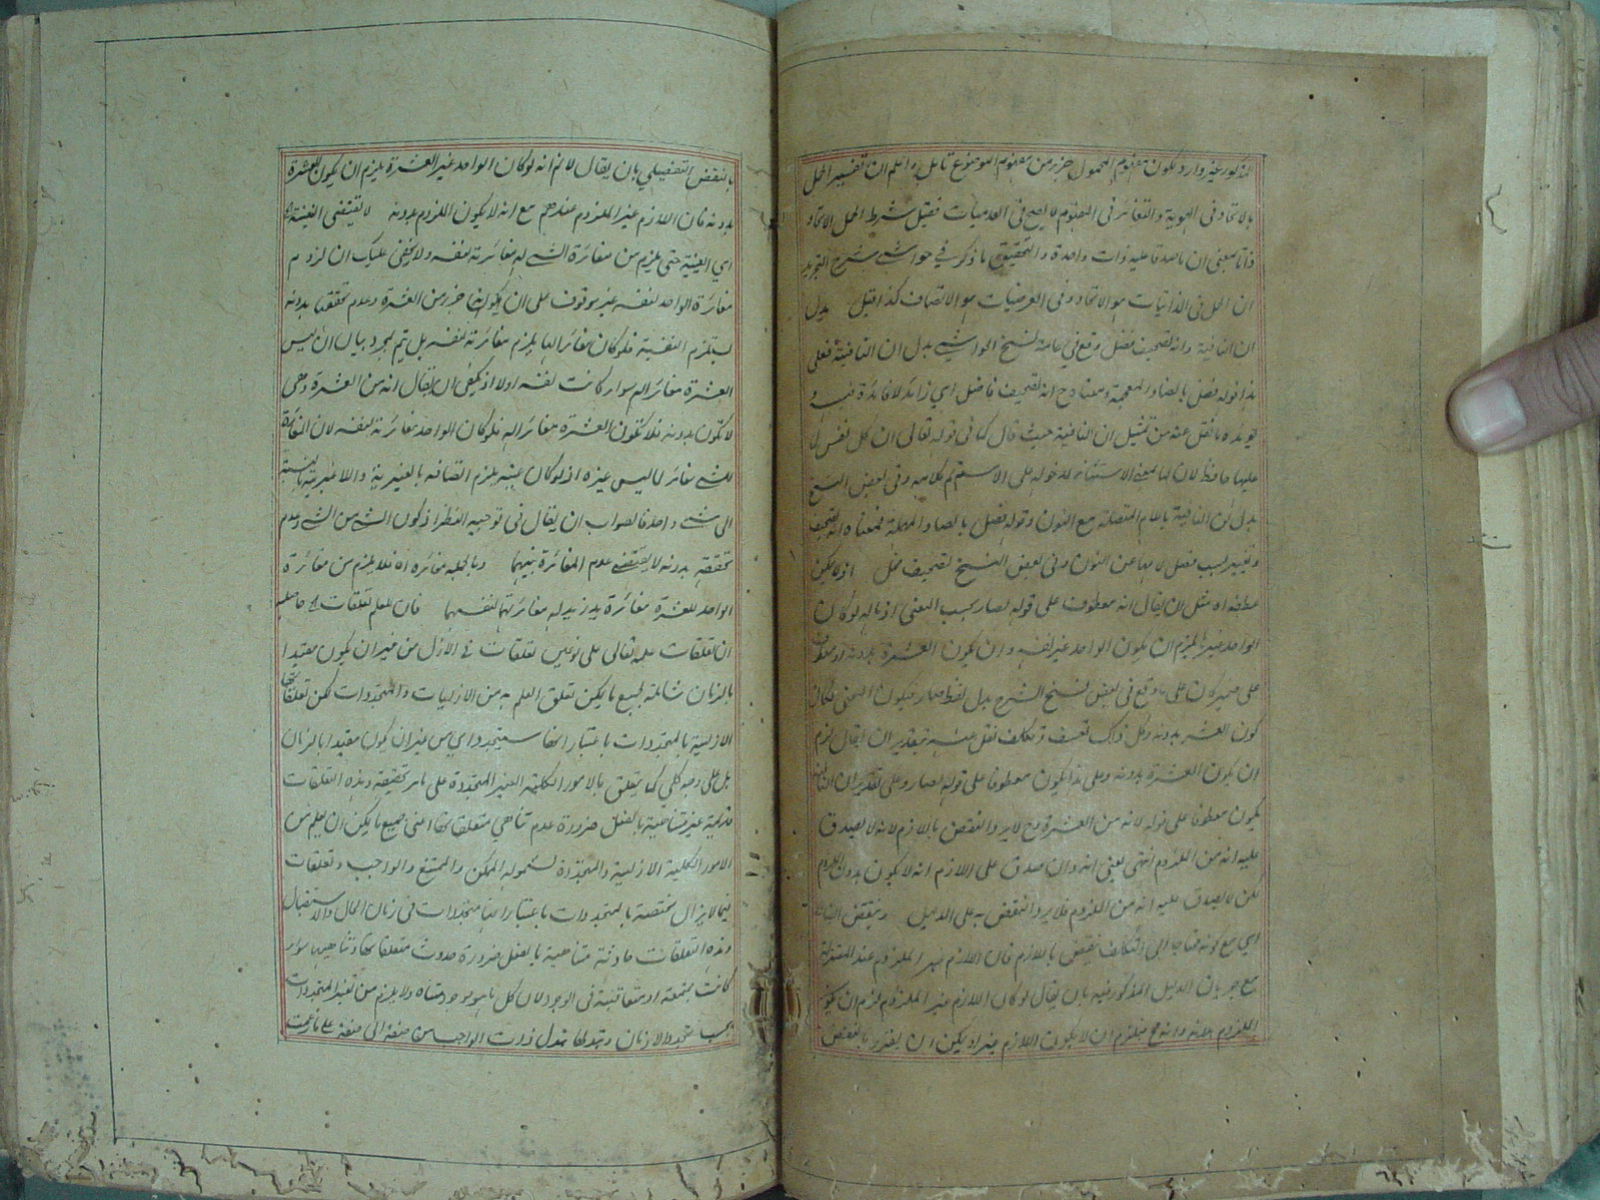 المذكور غير وارد لكون مفهوم المحمول جزء من مفهوم الموضوع تأمل واعلم ان تفسير الحمل
بالاتحاد في الهوية والتغائر في المفهوم لا يصح في العدميات فقيل شرط الحمل الاتحاد
ذاتا بمعنى ان ما صدقا عليه ذات واحدة والتحقيق ما ذكر في حواشي شرح التجريد
ان الحمل في الذاتيات هو الاتحاد وفي العرضيات هو الاتصاف كذا قيل بدل
ان النافية وانه تصحيف فضل وقع في عامة نسخ الحواشي بدل ان النافية فعلى
هذا قوله فضل بالضاد المعجمة ومعناه ح انه تصحيف فاضل اي زائد لا فائدة فيه و
يؤيده ما نقل عنه من تمثيل ان النافية حيث قال كما في قوله تعالى ان كل نفس لما
عليها حافظ لان لما بمعنى الاستثناء لدخوله على الاسم تم كلامه وفي بعض النسخ
بدل لن النافية باللام المتصلة مع النون وقوله فصل بالصاد المهملة فمعناه انه تصحيف
وتغيير بسبب فصل لامها عن النون وفي بعض النسخ تصحيف مخل اذ لا يمكن
عطفه اه مثل ان يقال انه معطوف على قوله لصار بحسب المعنى اذ مآله لو كان
الواحد غيرها يلزم ان يكون الواحد غير نفسه وان يكون العشرة بدونه او معطوف
على ضمير كان على ما وقع في بعض نسخ الشرح بدل لفظ صار فيكون المعنى لكان
كون العشرة بدونه وكل ذلك تعسف وتكلف نقل عنه بتقدير ان يقال لزم
ان يكون العشرة بدونه وعلى هذا يكون معطوفا على قوله لصار وعلى تقدير ان النافية
يكون معطوفا على قوله لانه من العشرة وح لا يرد النقض باللازم لانه لا يصدق
عليه انه من الملزوم انتهى يعني انه وان صدق على اللازم انه لا يكون بدون الملزوم
لكن لا يصدق عليه انه من الملزوم فلا يرد النقض به على الدليل وينقض
اي مع كونه محتاجا الى التكلف ينقض باللازم فان اللازم غير الملزوم عند المعتزلة
مع جريان الدليل المذكور فيه بان يقال لو كان اللازم غير الملزوم لزم ان يكون
الملزوم بدونه وانه مح فيلزم ان لا يكون اللازم غيرا ويمكن ان يقرر بالنقض
بالنقض التفصيلي بان يقال لا نم انه لو كان الواحد غير العشرة يلزم ان يكون العشرة
بدونه فان اللازم غير الملزوم عندهم مع انه لا يكون الملزوم بدونه لا تقتضي النفسية
اي العينية حتى يلزم من مغائرة الشيء له مغائرته لنفسه ولا يخفى عليك ان لزوم
مغائرة الواحد لنفسه غير موقوف على ان يكون جزء من العشرة وعدم تحققها بدونه
يستلزم النفسية فلو كان مغائرا لها يلزم مغائرته لنفسه بل يتم بمجرد بيان ان ليس
العشرة مغائرا له سواء كانت نفسه اولا اذ يكفي ان يقال انه من العشرة وهي
لا تكون بدونه فلا تكون العشرة مغائرا له فلو كان الواحد مغائرته لنفسه لان المغائرة
للشيء مغائر لما ليس غيره اذ لو كان عينه يلزم اتصافه بالغيرية واللاغيرية بالنسبة
الى شيء واحد فالصواب ان يقال في توجيه النظر اذ كون الشيء من الشيء وعدم
تحققه بدونه لا يقتضي عدم المغائرة بينهما وبالجملة مغائرة اه فلا يلزم من مغائرة
الواحد للعشرة مغائرة يد زيد له مغائرتهما لنفسهما فان للعلم تعلقات اه حاصله
ان تعلقات علمه تعالى على نوعين تعلقات في الازل من غير ان يكون مقيدا
بالزمان شاملة لجميع ما يمكن تعلق العلم به من الازليات والمتجددات لكن تعلقاتها
الازلية بالمتجددات باعتبار انها ستتجدد اي من غير ان يكون مقيدا بالزمان
بل على وجه كلي كما يتعلق بالامور الكلية الغير المتجددة على ما مر تحقيقه وهذه التعلقات
قديمة غير متناهية بالفعل ضرورة عدم تناهي متعلقاتها اعني جميع ما يمكن ان يعلم من
الامور الكلية الازلية والمتجددة لشموله الممكن والممتنع والواجب وتعلقات
فيما لا يزال مختصة بالمتجددات باعتبار انها متجددات في زمان الحال والاستقبال
وهذه التعلقات حادثة متناهية بالفعل ضرورة حدوث متعلقاتها وتناهيها سواء
كانت مجتمعة او متعاقبة في الوجود لان كل ما هو موجود متناه ولا يلزم من تغير المتجددات
بحسب تجدد الازمان وتبدلها تبدل ذات الواجب من صفة الى صفة على ما زعمت